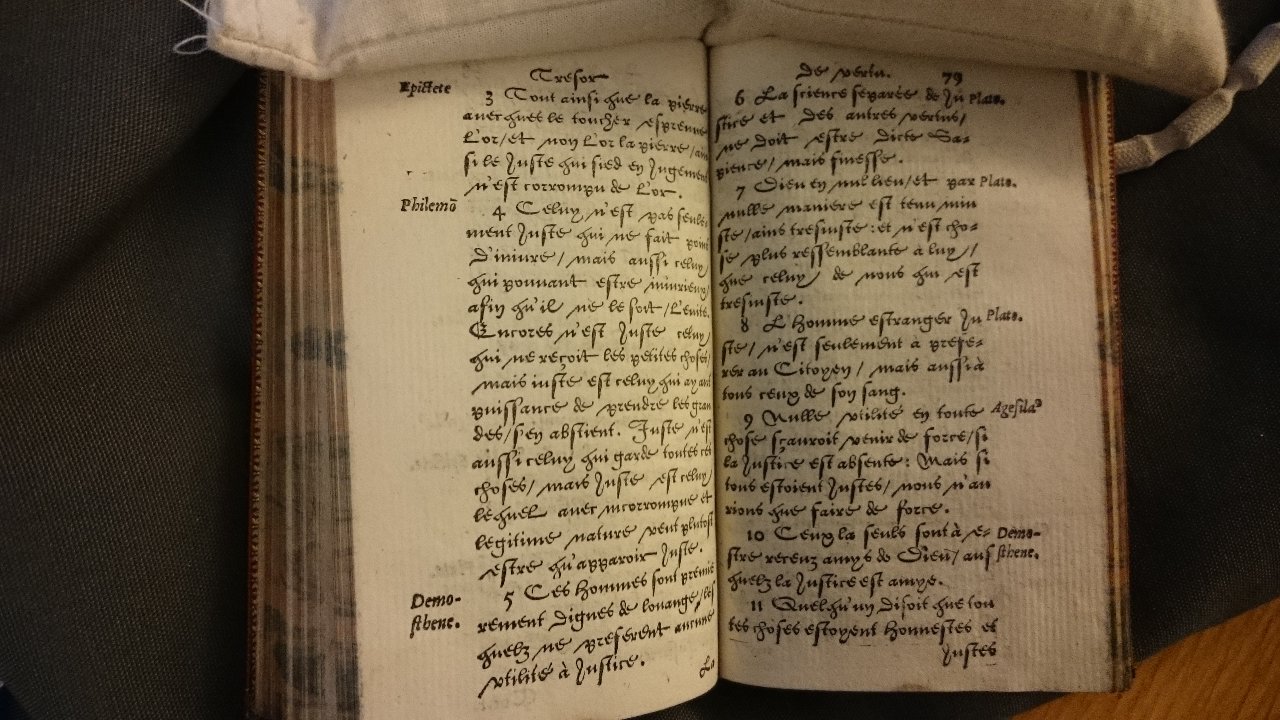 Tresor
Epictete
3 Tout ainsi que la pierre
auecques le toucher espreuue
L'or, et non L'or la pierre / ain
si le Juste qui sied en Jugement
n'est corrompu de L'or.
Philemõ
4 Celuy n'est pas seule-
ment Juste qui ne fait point
D'iniure / mais aussi celuy
qui pouuant estre iniurieux
afin qu'il ne le soit / L'euite.
Encores n'est Juste celuy
qui ne reçoit les petites choses,
mais iuste est celuy qui ayant
puissance de prendre les gran
des / s'en abstient. Juste n'est
aussi celuy qui garde toutes ces
choses / mais Juste est celuy
lequel auec incorrompue et
legitime nature veut plutost
estre qu'apparoir Juste.
Demo-
sthene.
5 Ces Hommes sont premie
rement dignes de louange / les
quelz ne preferent aucune
vtilité à Justice.
de vertu. 79
6 La science separée de Ju
Plato.
stice et des autres vertus /
ne doit estre dicte Sa-
pience / mais finesse.
7 Dieu en nul lieu / et par
Plato.
nulle maniere est tenu iniu
ste / ains tresiuste : et n'est cho-
se plus ressemblante à luy /
que celuy de nous qui est
tresiuste.
8 L'Homme estranger Ju
Plato.
ste / n'est seulement à prefe-
rer au Citoyen / mais aussi à
tous ceux de son sang.
9 Nulle vtilité en toute
Agesila⁹
chose sçauroit venir de force / si
la Justice est absente : Mais si
tous estoient Justes / nous n'au
rions que faire de force.
10 Ceux la seuls sont à e-
Demo-
sthene.
stre receuz amys de Dieu / aus
quelz la Justice est amye.
11 Quelqu'un disoit que tou
tes choses estoyent Honnestes et
Justes